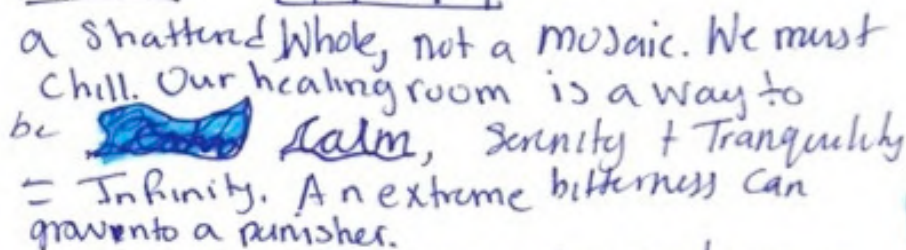 a Shattered Whole, not a mosaic. We must
Chill. Our healing room is a way to
be Calm, Serenity + Tranquility
= Infinity. An extreme bitterness can
a punisher.